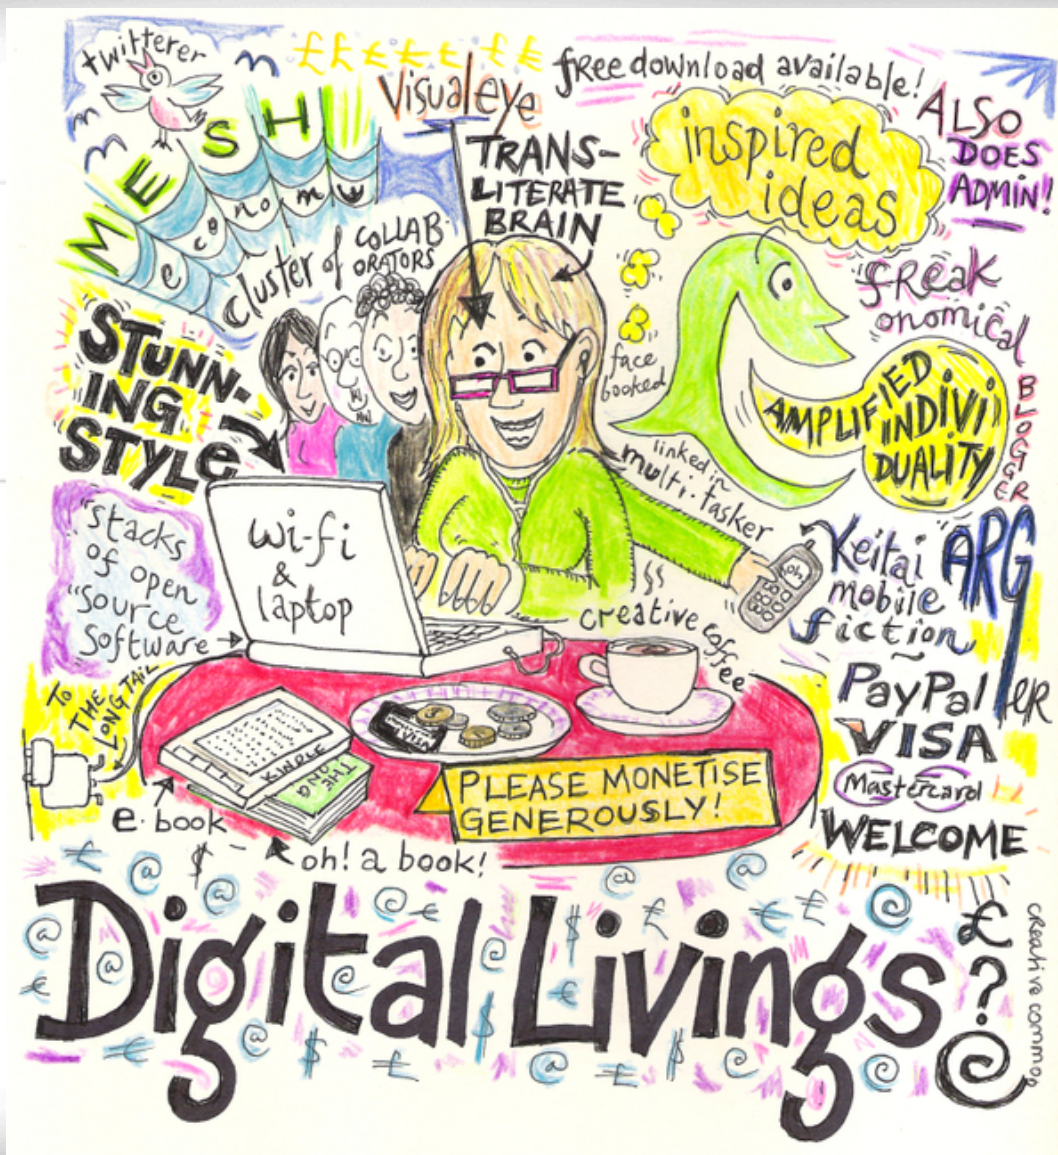 twitterer
£ £ € € € £ €
visual eye
free download available!
MESH
economy
TRANS-
LITERATE
BRAIN
inspired
ideas
ALSO
DOES
ADMIN!
cluster of
COLLAB-
ORATORS
freak
onomical
STUNN-
ING
STYLe
face
booked
AMPLIFIED
INDIVI
DUALITY
BLOGGER
linked in
multi-tasker
"stacks
of open
"source
software
wi-fi
&
laptop
Keitai
mobile
fiction
ARG
ER
creative coffee
TO
THE
LONG TAIL
PayPal
VISA
Mastercard
WELCOME
KINDLE
VISA
PLEASE MONETISE
GENEROUSLY!
e.book
oh! a book!
Digital Livings
£?@
creative common